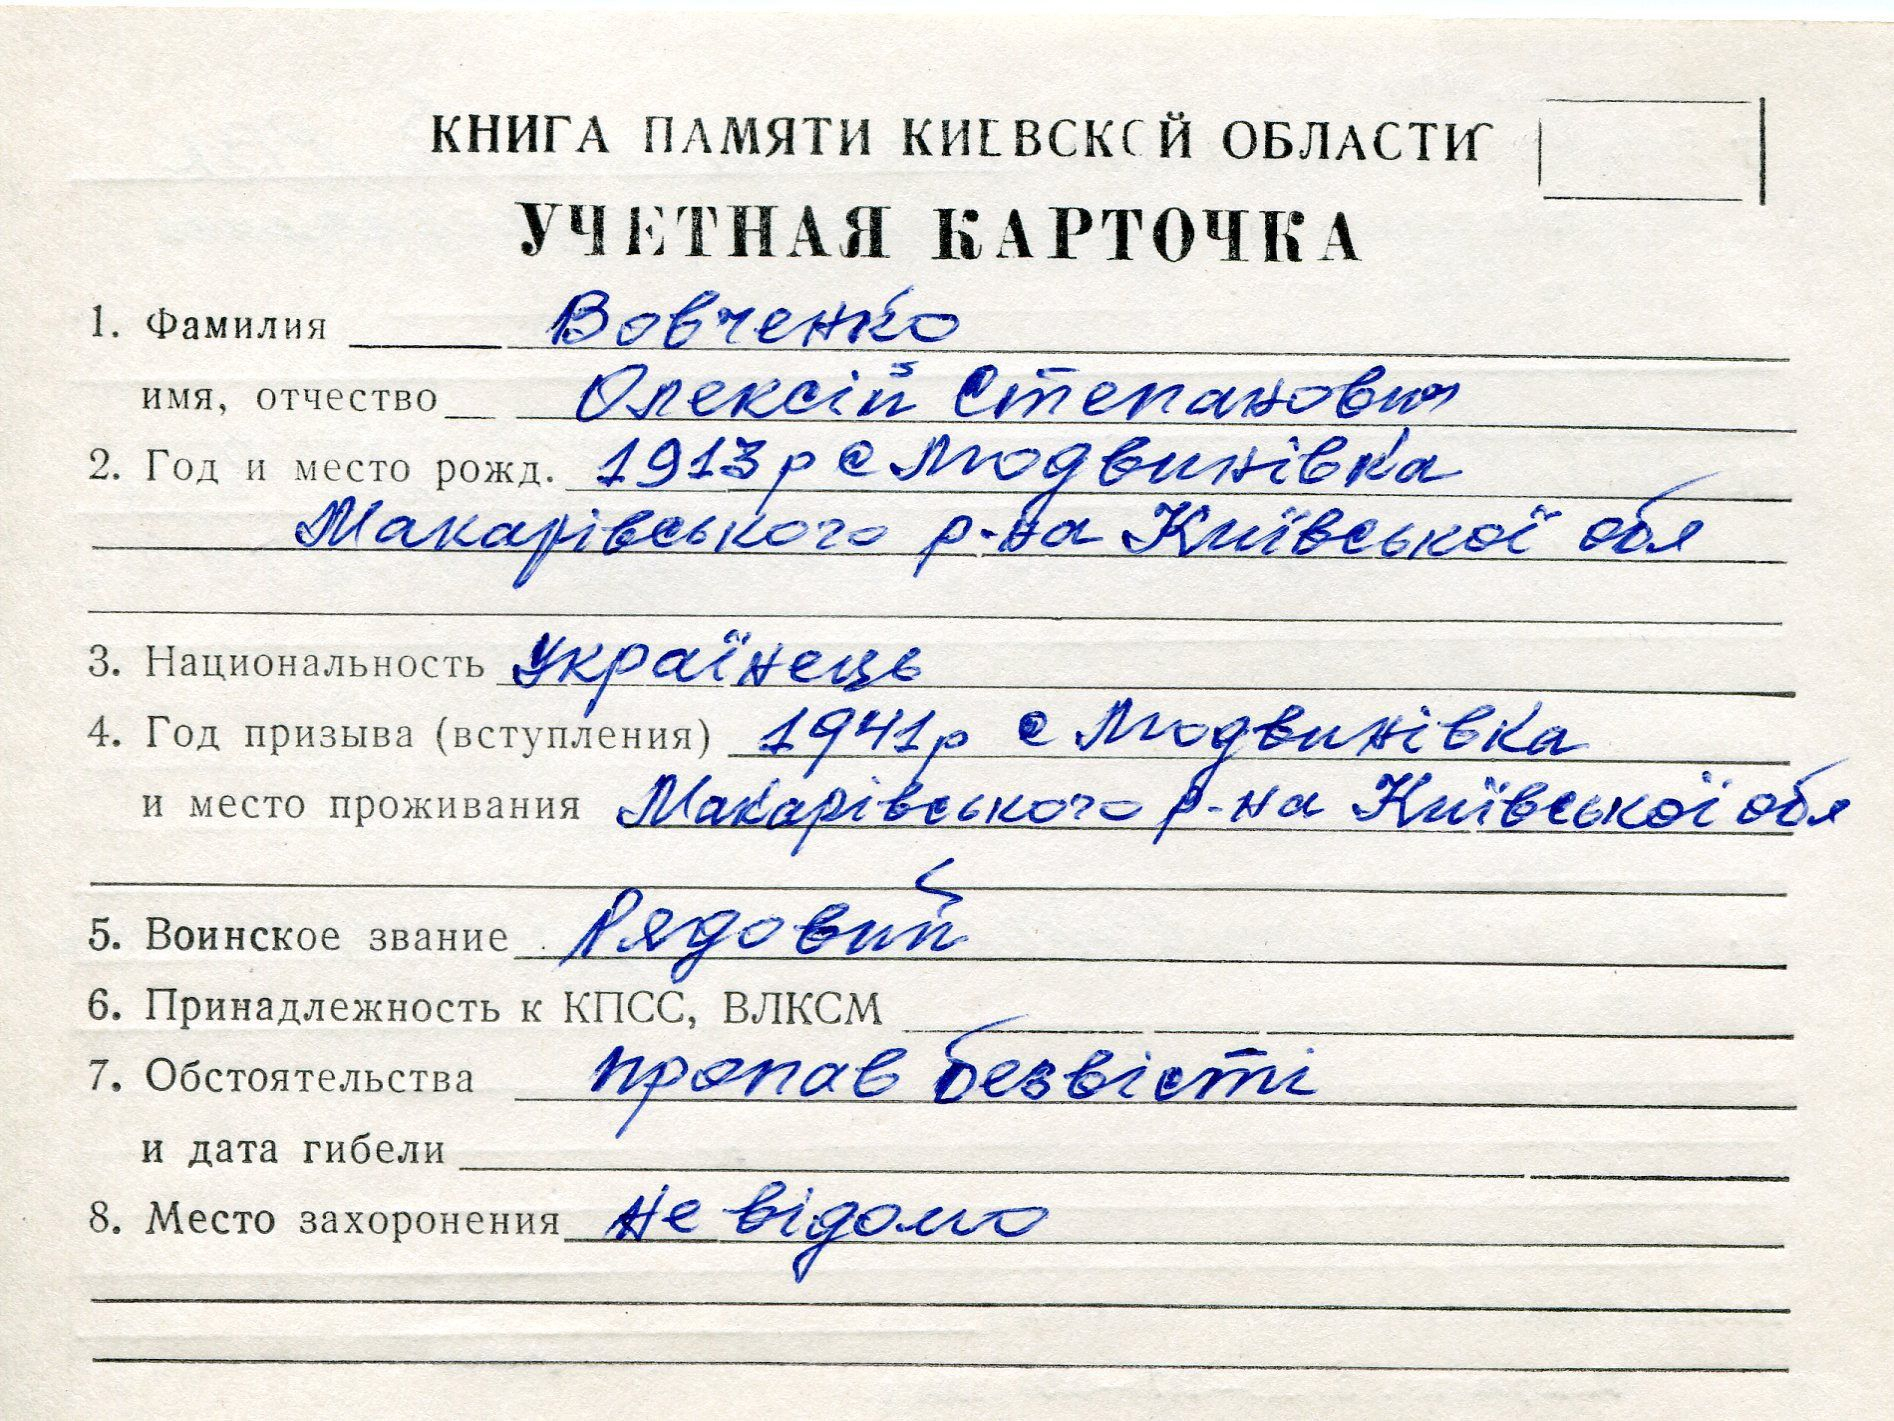 КНИГА ПАМЯТИ КИЕВСКОЙ ОБЛАСТИ
УЧЕТНАЯ КАРТОЧКА
1. Фамилия Вовченко
имя, отчество Олексій Степанович
2. Год и место рожд. 1913р с Людвинівка
Макарівського р-на Київської обл
3. Национальность Українець
4. Год призыва (вступления) 1941р с Людвинівка
и место проживания Макарівського р-на Київської обл
5. Воинское звание Рядовий
6. Принадлежность к КПСС, ВЛКСМ
7. Обстоятельства пропав безвісті
и дата гибели
8. Место захоронения Не відомо